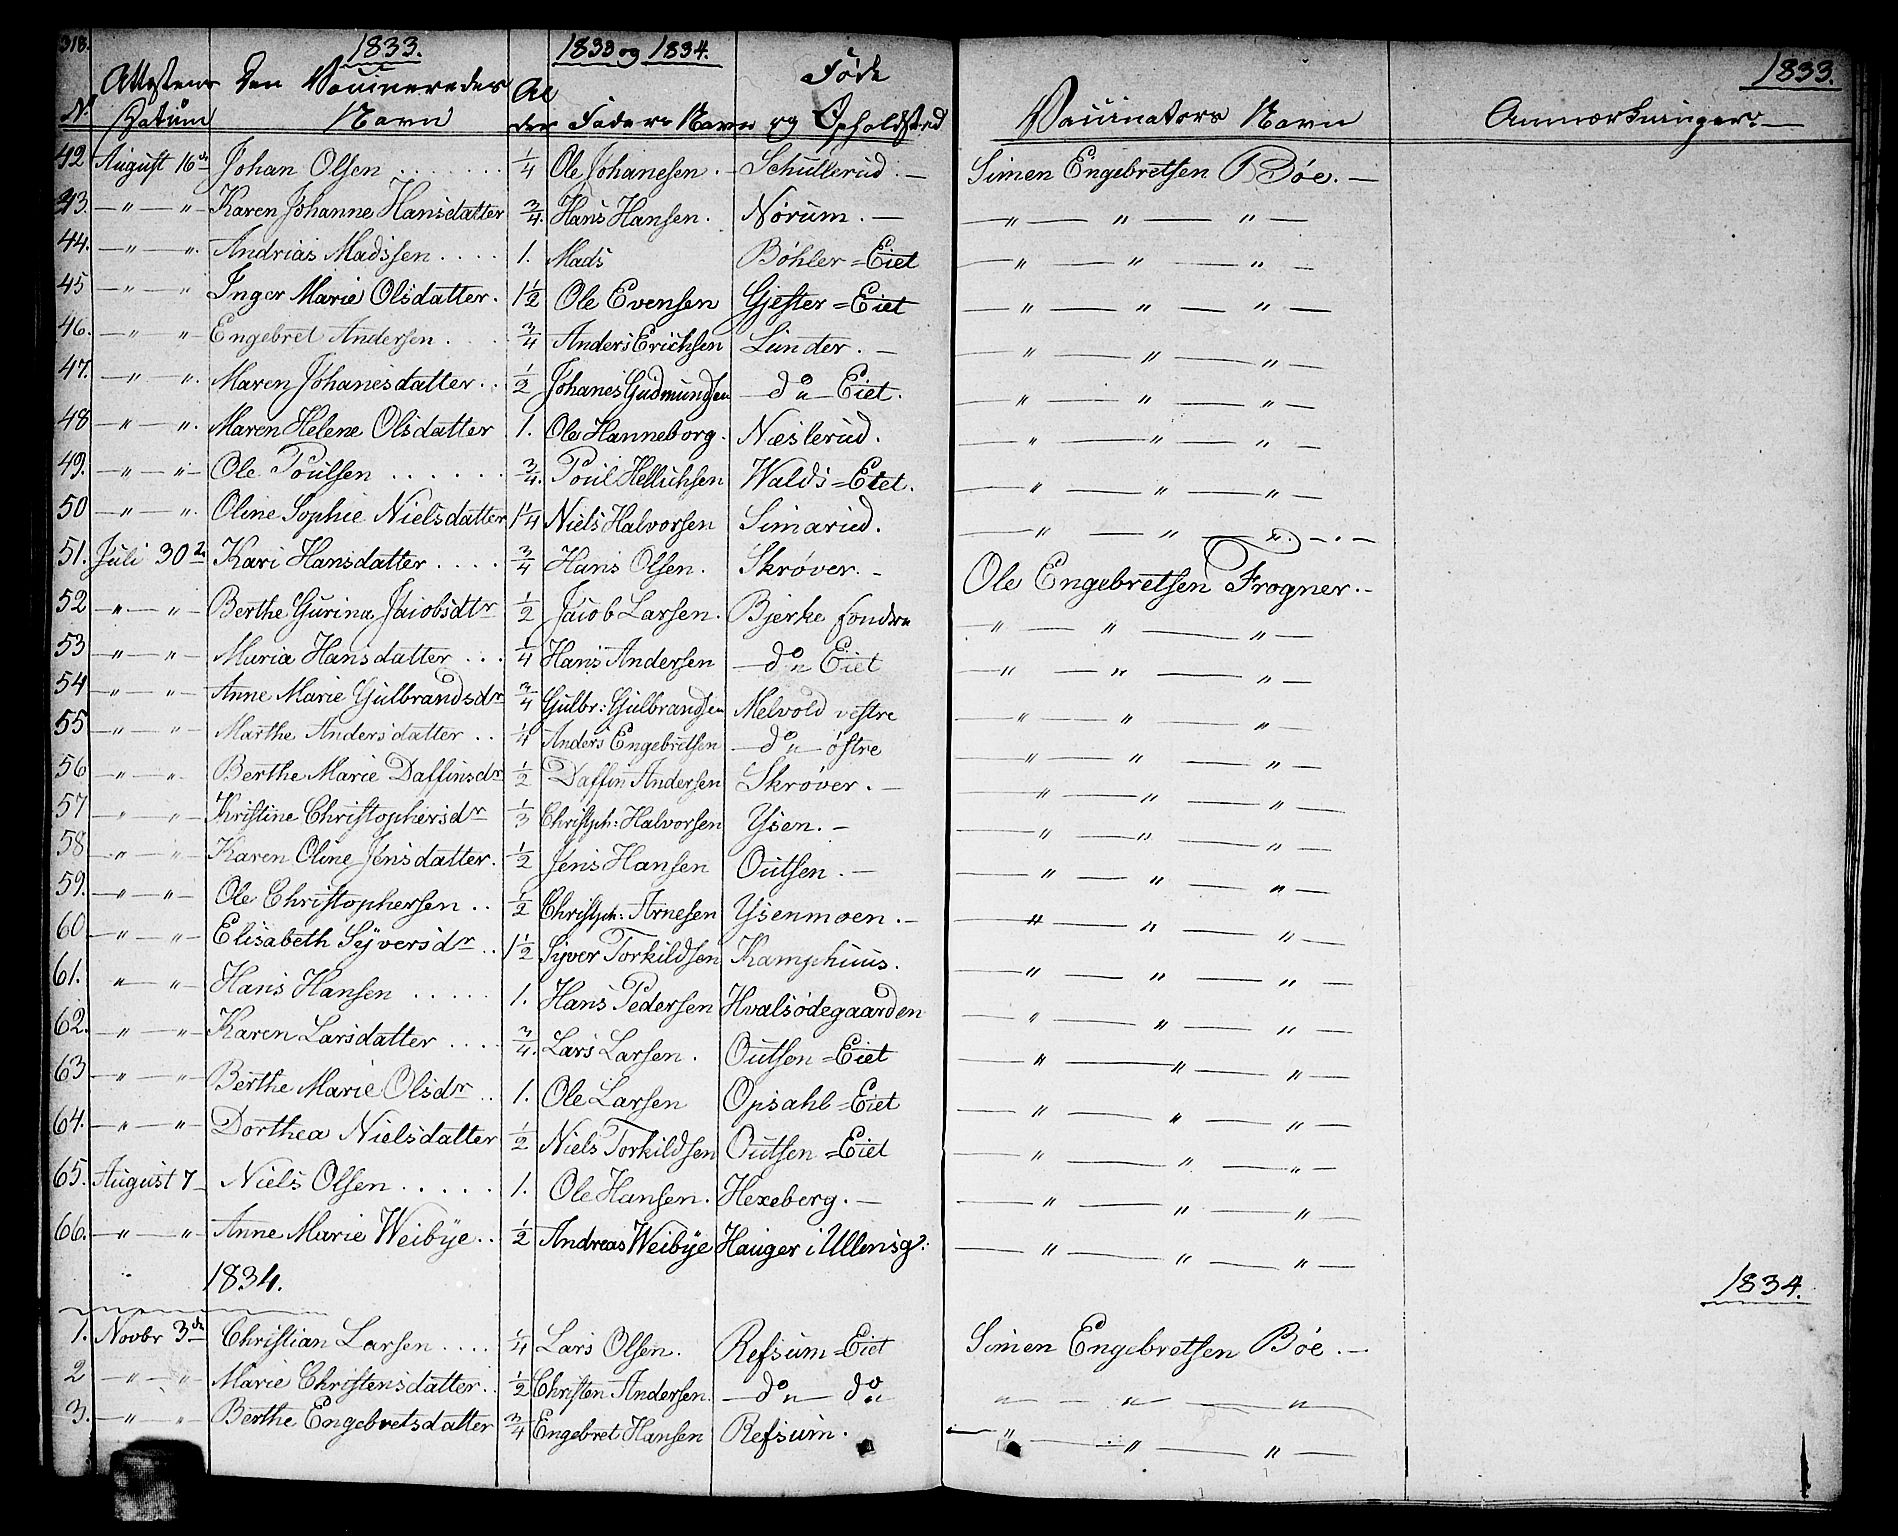 318. 1833. 1833 og 1834. 1833.
No Attestens Datum Den Vaccineredes Navn Alder Faders Navn Føde og Opholdsted Vaccinators Navn Anmærkninger.
42 August 16de Johan Olsen . . . . . . . 1/4 Ole Johanesen. Schullerud. — Simen Engebretsen Bøe. —
43. — " — " — Karen Johanne Hansdatter 3/4. Hans Hansen. Nørum. — — " — " — " —
44. — " — ". Andrias Madssen. . . . 1. Mads Bøhler=Eiet — " — " — " —
45 — " — " Inger Marie Olsdatter. 1 1/2 Ole Evensen Gjester=Eiet — " — " — " —
46. — " — " Engebret Andersen . . . . 3/4 Anders Erichsen Lunder. — — " — " — " —
47. — " — ". Maren Johanesdatter. . . 1/2 Johanes Gudmundsen — do — Eiet. — " — " — " —
48 — " — ". Maren Helene Olsdatter 1. Ole Hanneborg. Næslerud. — " — " — " —
49. — " — " — Ole Poulsen . . . . . . 3/4. Poul Hellichsen Walds=Eiet. — " — " — " —
50 — " — ". Oline Sophie Nielsdatter 1 1/4 Niels Halvorsen Simarud. — " — " — " — . —
51. Juli 30te Kari Hansdatter . . . . 3/4 Hans Olsen. Skrøver. — Ole Engebretsen Frogner. —
52 " — " Berthe Gurina Jacobsdtr 1/2 Jacob Larsen. Bjerke søndre — " — " — " —
53 — " — " — Maria Hansdatter . . . 1/4 Hans Andersen — do Eiet — " — " — " —
54 — " — " — Anne Marie Gulbrandsdr 3/4 Gulbr: Gulbrandsen Melvold vestre — " — " — " —
55 — " — " — Marthe Andersdatter . . 1/4 Anders Engebretsen — do — østre — " — " — " —
56 — " — " Berthe Marie Daffinsdr 1/2 Daffin Andersen Skrøver. — — " — " — " —
57 — " — " — Kristine Christophersdr 1/3 Christph: Halvorsen Ysen. — — " — " — " —
58 — " — " — Karen Oline Jensdatter. 1/2 Jens Hansen Outsen. — — " — " — " —
59. — " — " — Ole Christophersen . . 1/2 Christph: Arnesen Ysenmoen. — — " — " — " —
60 — " — " — Elisabeth Syversdr . . 1 1/2 Syver Torkildsen Kamphuus. — " — " — " —
61. " — " — Hans Hansen . . . . . 1. Hans Pedersen Hvalsødegaarden — " — " — " —
62. — " — " Karen Larsdatter . . . . 3/4. Lars Larsen. Outsen=Eiet — " — " — " —
63 — " — " — Berthe Marie Olsdr . . 1. Ole Larsen Opsahl=Eiet — " — " — " —
64. — " — " Dorthea Nielsdatter 1/2 Niels Torkildsen Outsen=Eiet — " — " — " —
65. August 7 — Niels Olsen . . . . . 1. Ole Hansen. Hexeberg. — — " — " — " —
66. — " — " Anne Marie Weibye. . 1/2 Andreas Weibye Hauger i Ullensg: — " — " — " —
1834. 1834.
1. Novbr 3de Christian Larsen . . . . 1/4 Lars Olsen. Refsum=Eiet Simen Engebretsen Bøe. —
2 — " — " Marie Christensdatter. . 1/2 Christen Andersen. — do — do " — " — "
3. — " — " Berthe Engebretsdatter 3/4 Engebret Hansen Refsum. — " — " — " —